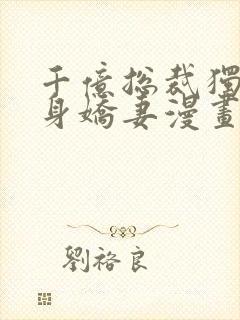 千億总裁獨
身嬌妻漫畫
劉袼良